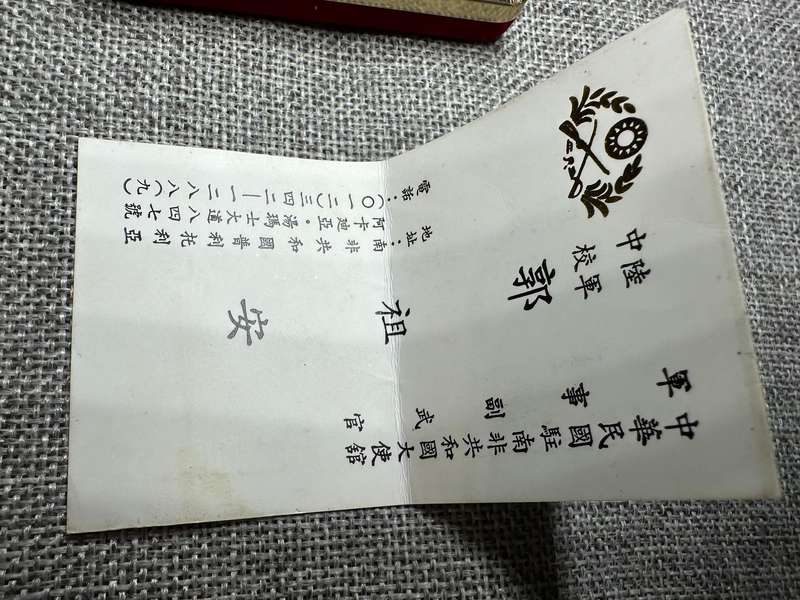 中華民國駐南非共和國大使館
軍事副武官
郭祖安
陸軍
中校
地址：南非共和國普利托利亞
阿卡迪亞．湯瑪士大道八四七號
電話：（〇一二）三四二—一二八八（九）